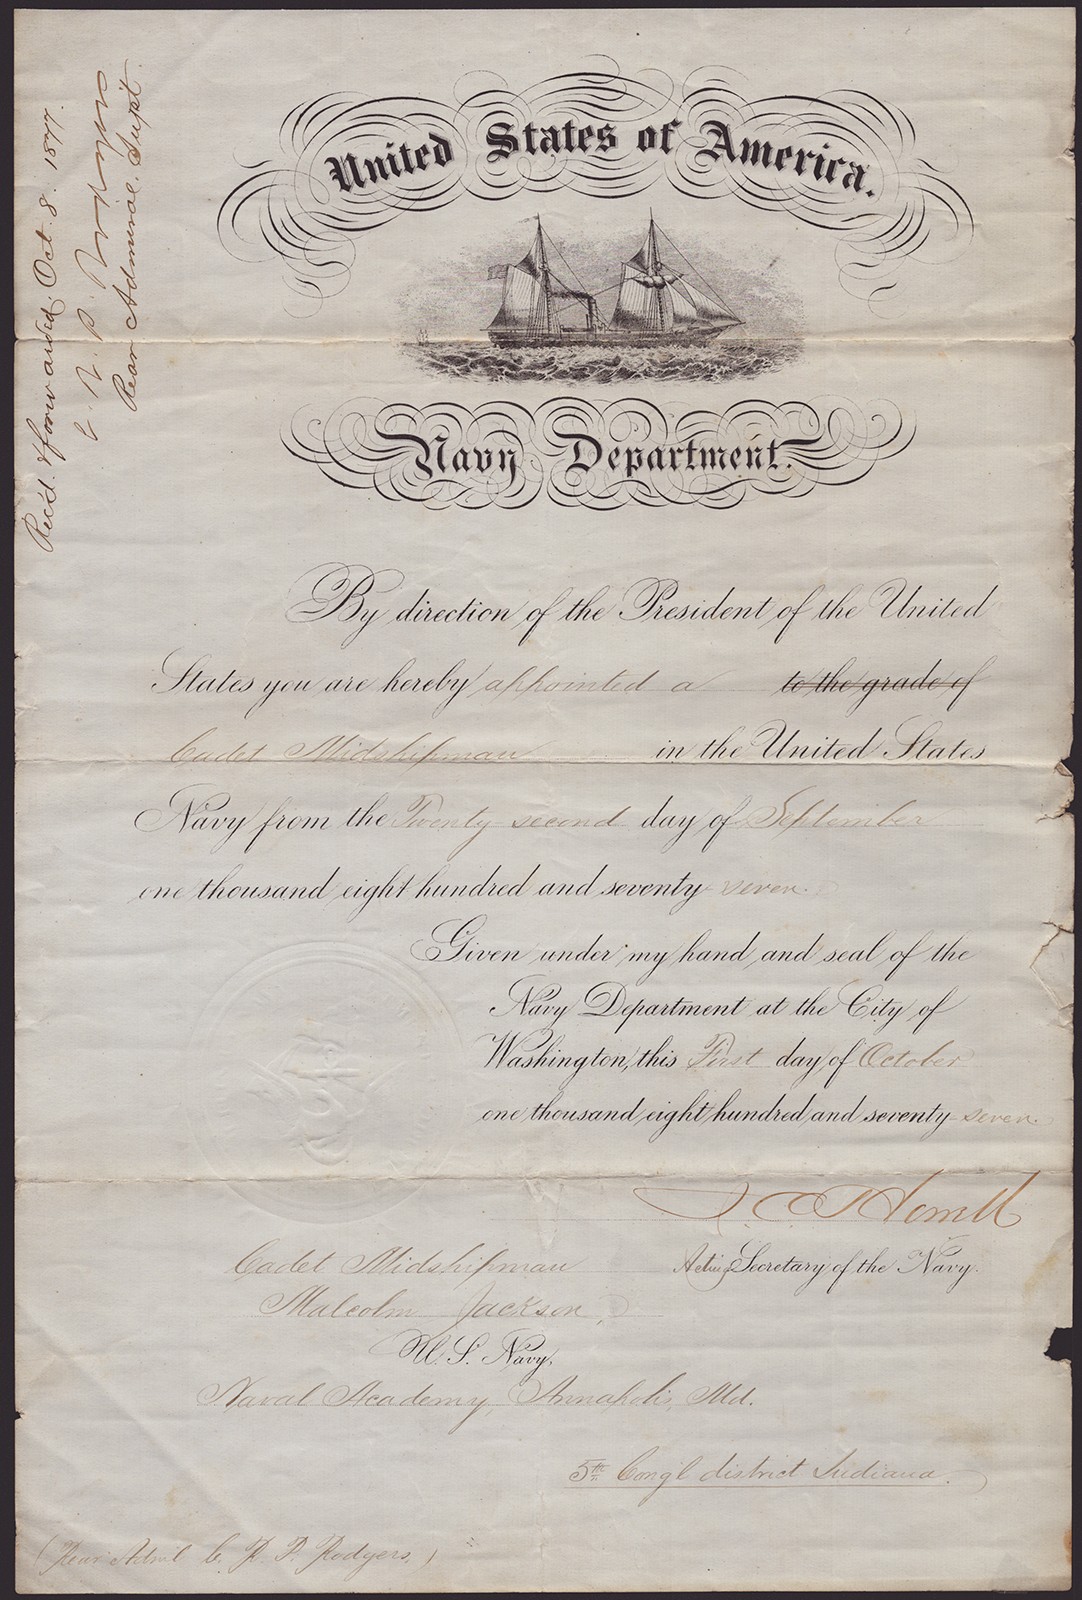 Rec'd. & forwarded, Oct. 8. 1877.
C. R. P. Rodgers
Rear Admiral, Supt.
United States of America.
Navy Department.
By direction of the President of the United
States you are hereby appointed a to the grade of
Cadet Midshipman in the United States
Navy from the Twenty second day of September
one thousand eight hundred and seventy-seven.
Given under my hand and seal of the
Navy Department at the City of
Washington, this First day of October
one thousand eight hundred and seventy-seven.
Acting Secretary of the Navy.
Cadet Midshipman
Malcolm Jackson,
U. S. Navy,
Naval Academy, Annapolis, Md.
5th Cong'l district Indiana.
(Rear Adm'l C. R. P. Rodgers.)